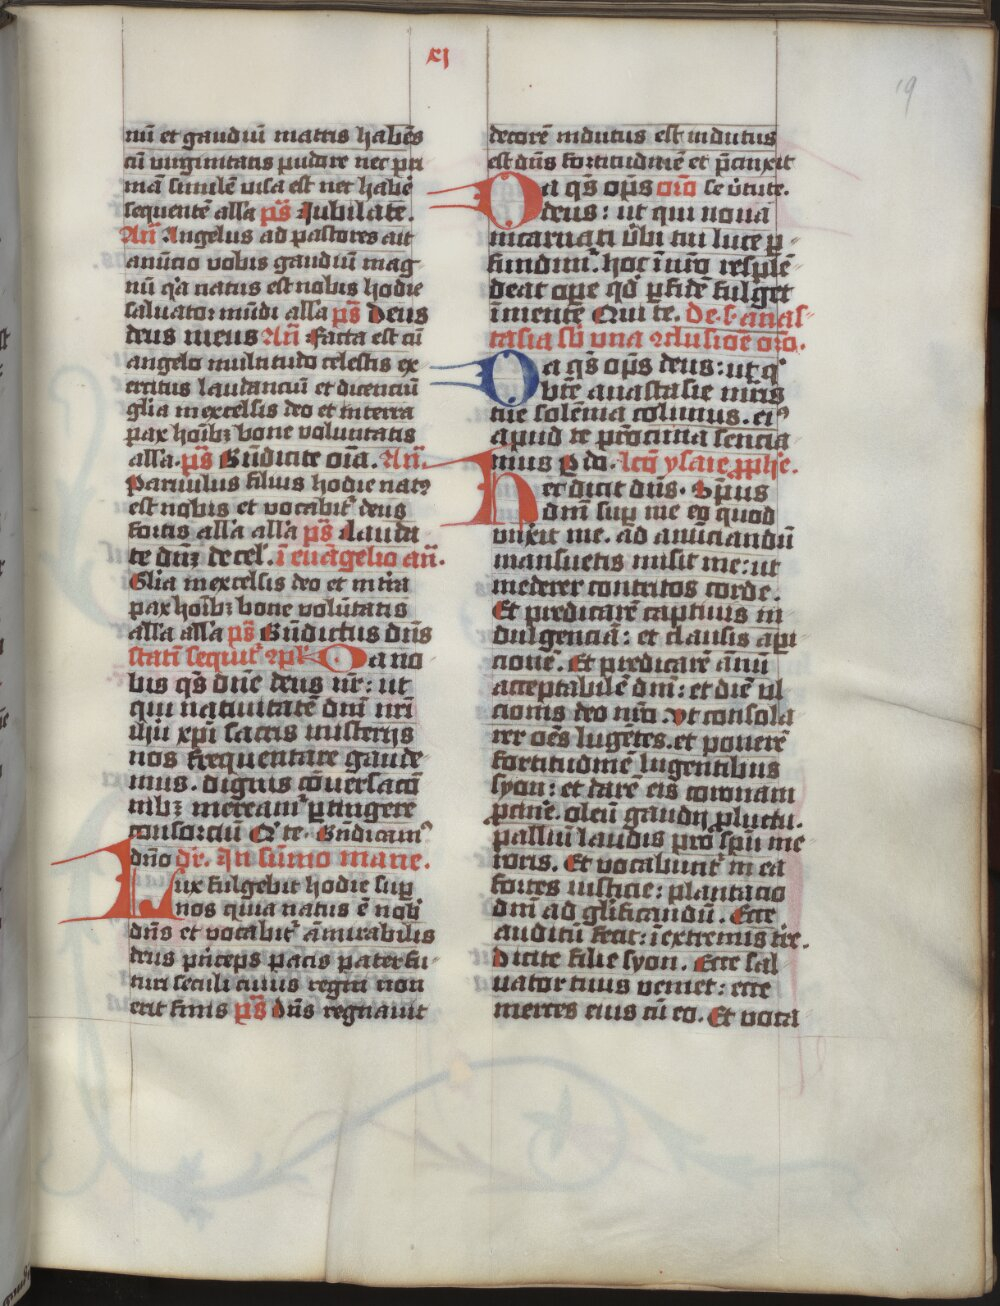 xj
19
nū et gaudiū matris habēs
cū virginitatis pudore nec pri
mā similē visa est nec habē
sequentē alla ps̄ Jubilate.
An̄ Angelus ad pastores ait
anūcio vobis gaudiū mag
nū q̄a natus est nobis hodie
saluator mūdi alla ps̄ Deus
deus meus An̄ Facta est cū
angelo multitudo celestis ex
ercitus laudanciū et dicenciū
glia in excelsis deo et in terra
pax hoībꝫ bone voluntatis
alla. ps̄ Bn̄dicite oīa. An̄.
Paruulus filius hodie natꝰ
est nobis et vocabit᷑ deus
fortis alla alla ps̄ Lauda
te dn̄ꝫ de cel. ī euāgelio an̄.
Glia in excelsis deo et in tr̄ra
pax hoībꝫ bone volūtatis
alla alla ps̄ Bn̄dictus dn̄s
statī sequit᷑ 9pl᷑ Da no
bis qs̄ dn̄e deus nr̄: ut
qui natiuitatē dn̄i nr̄i
ihū xp̄i sacris misterijs
nos frequentare gaude
mus. dignis cōuersacō
nibꝫ meream᷑ ꝑtingere
consorciū Q᷑ te. Bn̄dicamꝰ
dn̄o dr̄. In sūmo mane.
Lux fulgebit hodie suꝑ
nos quia natus ē nob᷑
dn̄s et vocabit᷑ amirabilis
deus pn̄ceps pacis pater fu-
turi seculi cuius regni non
erit finis ps̄ dn̄s regnauit
decorē indutus est indutus
est dn̄s fortitudinē et p̄cinxit
Da qs̄ op̄s or̄o se v̄tute.
deus: ut qui noua
incarnati v̄bi tui luce ꝑ-
fundim᷑. hoc ī nr̄o resplē
deat oꝑe qd̄ ꝑ fidē fulget
ī mente Qui te. De. s. anas-
tasia sb̄ vna 9clusiōe or̄o.
Da qs̄ op̄s deus: ut q᷑
bt̄e anastasie mr̄is
tue solēnia colimus. eiꝰ
apud te p̄rocinia sencia
mus P do. lcc̄o ysaie ꝓphe.
Hec dicit dn̄s. Sp̄us
dn̄i suꝑ me eo quod
vnxit me. ad anūciandū
mansuetis misit me: ut
mederer contritos corde.
Et predicarē captiuis in
dulgenciā: et clausis aꝑi
cionē. Et predicarē ānū
acceptabilē dn̄i: et diē vl
cionis deo nr̄o. Vt consola
rer oēs lugētes. et ponerē
fortitudinē lugentibus
syon: et darē eis coronam
ꝑ cinē. oleū gaudij ꝑ luctu.
palliū laudis pro spū me
roris. Et vocabunt᷑ in ea
fortes iusticie: plantacio
dn̄i ad glīficandū. Ecce
auditū fecit: ī extremis tr̄e.
Dicite filie syon. Ecce sal
uator tuus veniet: ecce
merces eius cū eo. Et voca